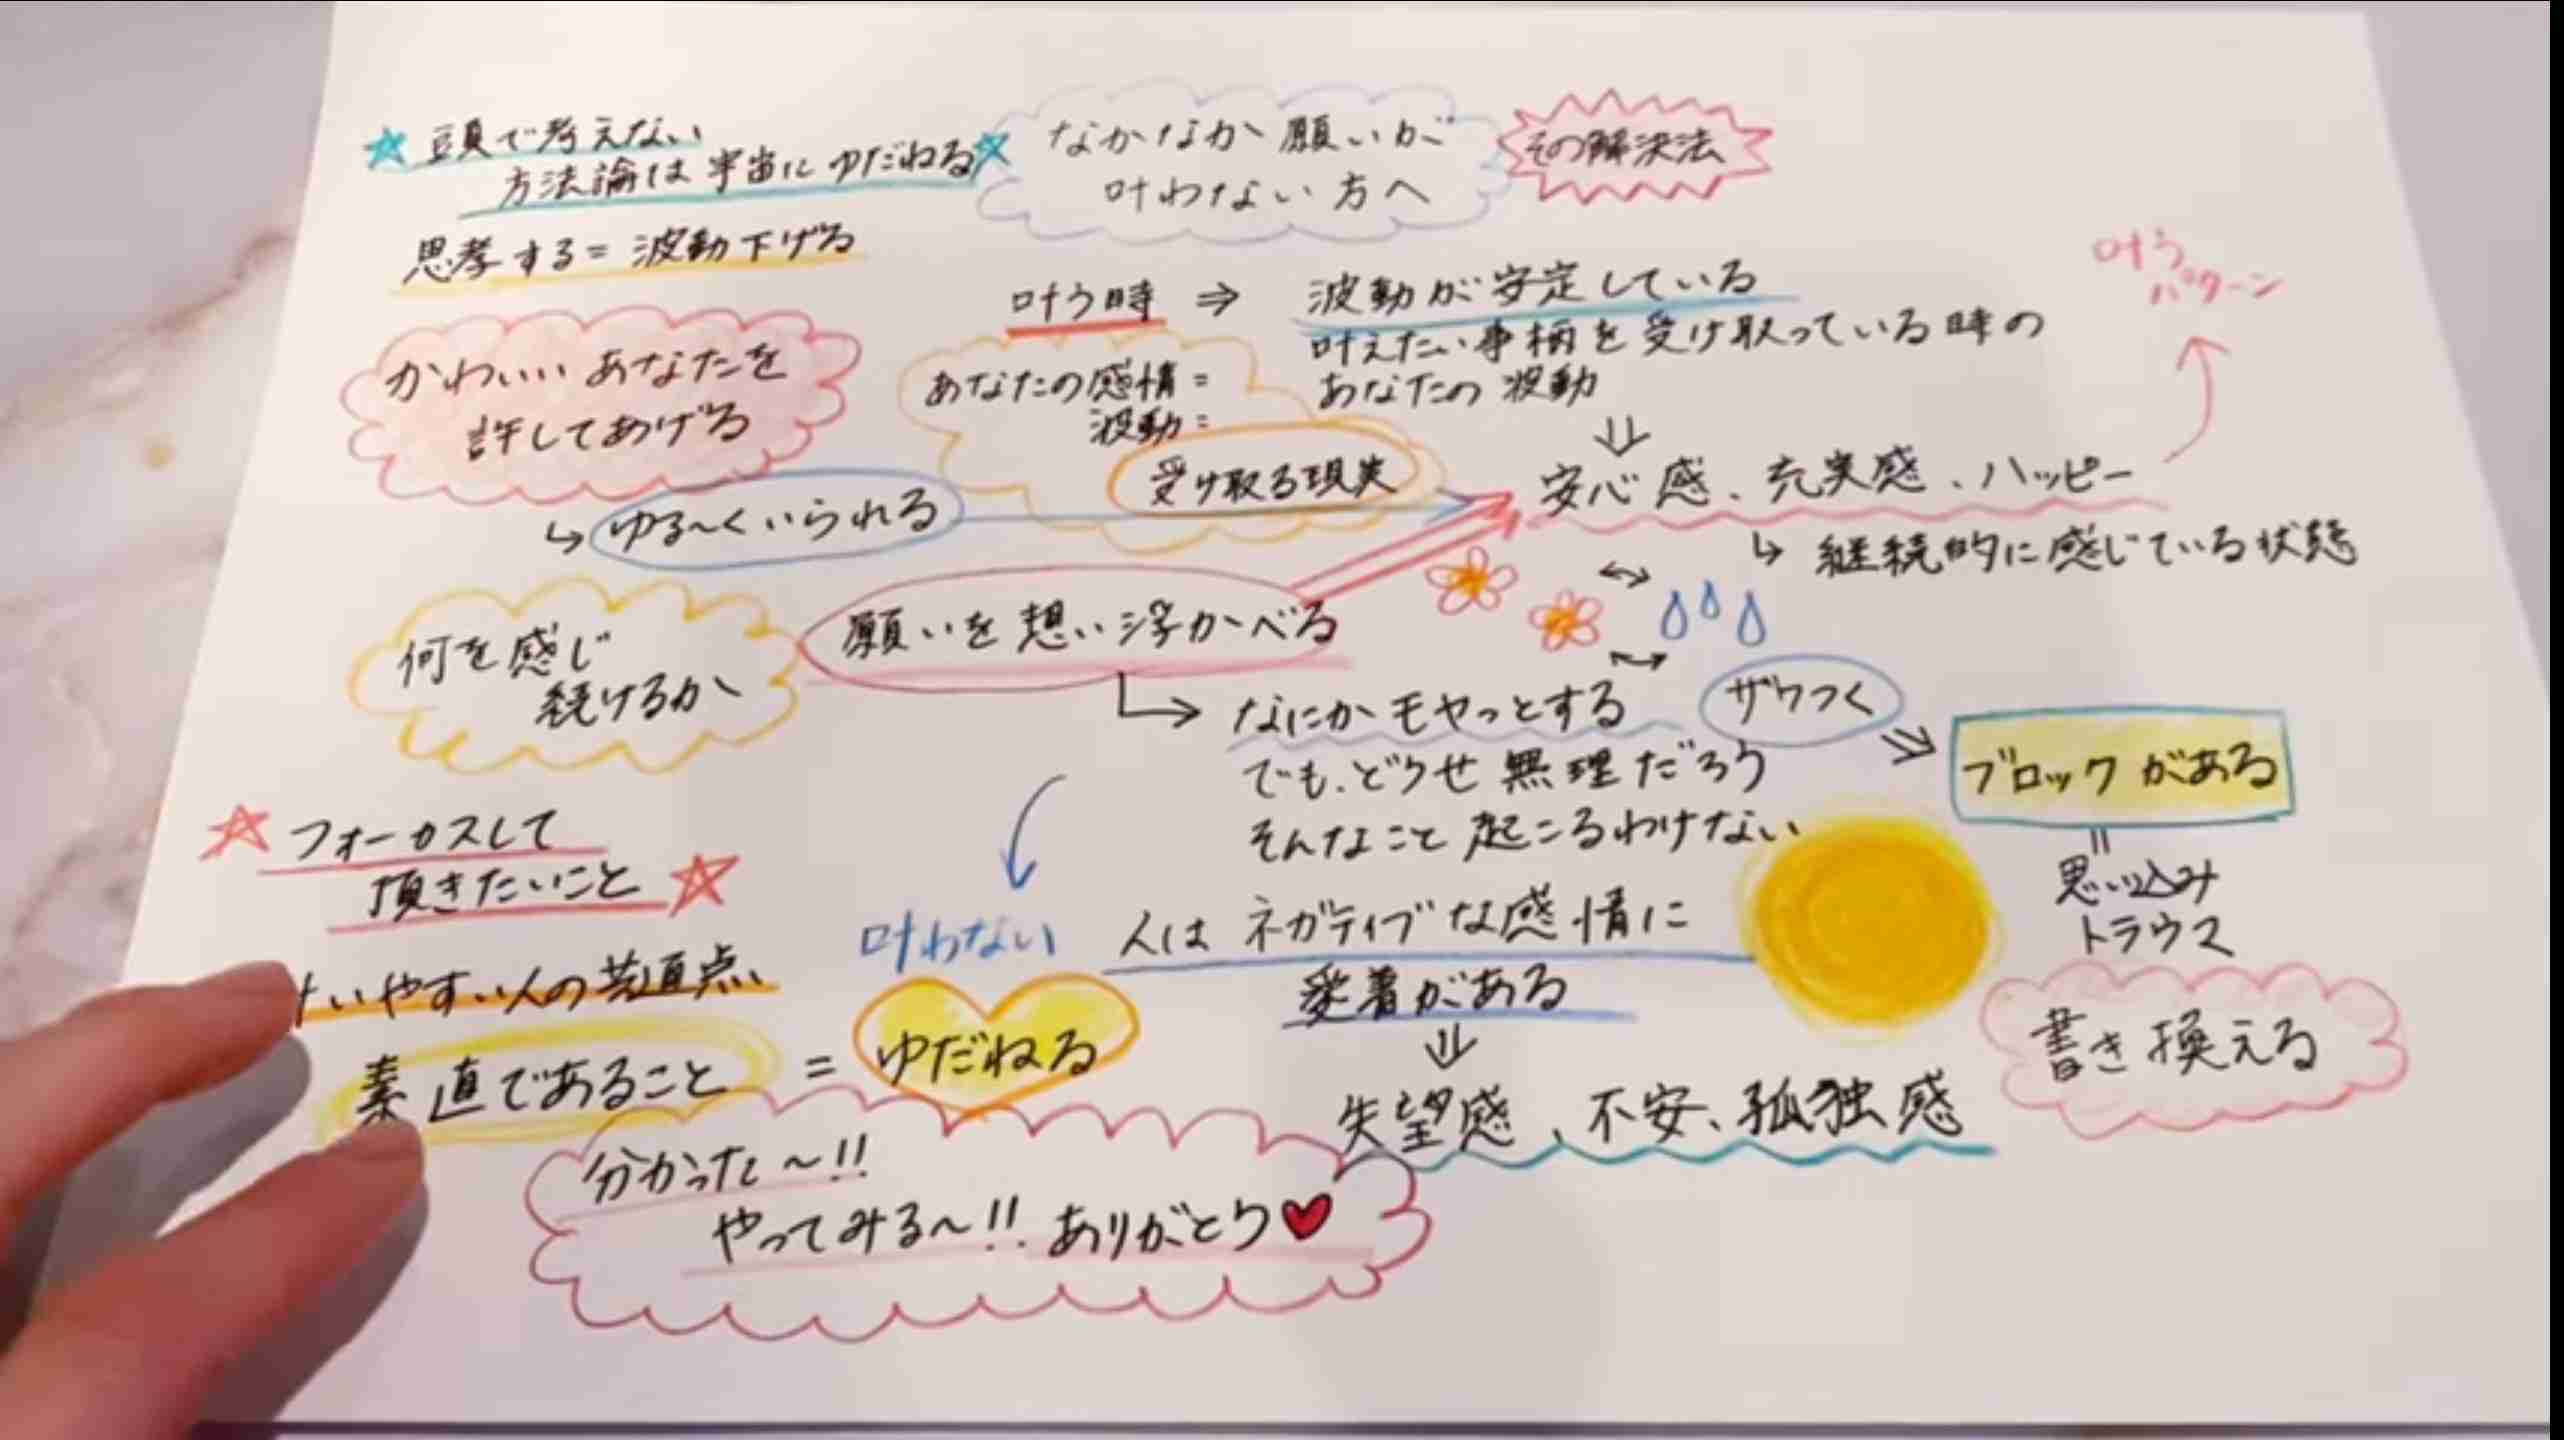 なかなか願いが
叶わない方へ
その解決法
☆頭で考えない
方法論は宇宙にゆだねる☆
思考する=波動下げる
叶う時 ⇒ 波動が安定している
叶えたい事柄を受け取っている時の
あなたの波動
⇓
安心感、充実感、ハッピー
↳ 継続的に感じている状態
叶う
パターン
あなたの感情=
波動=
受け取る現実
かわいいあなたを
許してあげる
↳ ゆる〜くいられる
何を感じ
続けるか
願いを想い浮かべる
→ なにかモヤっとする
ザワつく
でも、どうせ無理だろう
そんなこと起こるわけない
⇒ ブロックがある
=
思い込み
トラウマ
書き換える
叶わない
人はネガティブな感情に
愛着がある
⇓
失望感、不安、孤独感
☆フォーカスして
頂きたいこと☆
いやすい人の共通点
素直であること = ゆだねる
分かった〜!!
やってみる〜!! ありがとう♥